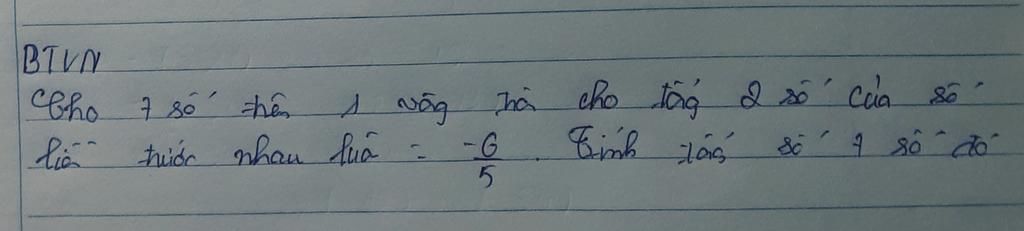 BTVN
Cho 7 số trên 1 vòng sao cho tổng 2 số của số
liền trước nhau luôn = -6/5. Tính tổng số 7 số đó